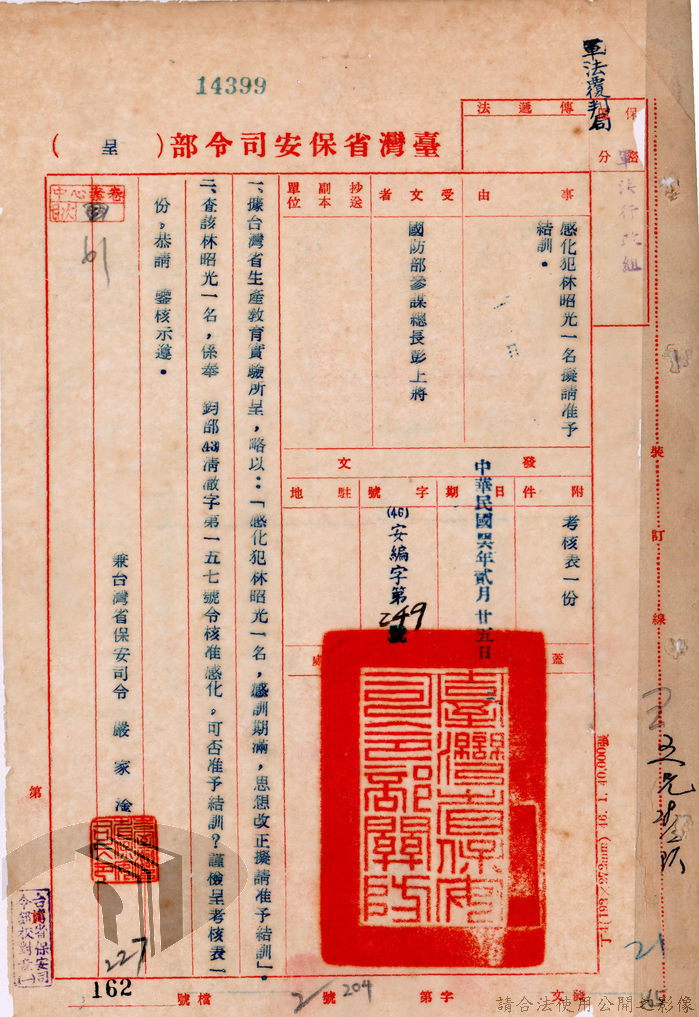 14399
軍法覆判局
保密
區分
傳遞法
軍法行政組
臺灣省保安司令部(呈)
事由
感化犯林昭光一名擬請准予
結訓。
受文者
國防部參謀總長彭上將
抄送副本單位
發文
附件
考核表一份
日期
中華民國四六年貳月廿五日
字號
(46)安編字第249號
駐地
蓋
處
臺灣省保安司令部關防
一、據台灣省生產教育實驗所呈,略以:「感化犯林昭光一名,感訓期滿,思想改正擬請准予結訓」。
二、查該林昭光一名,係奉 鈞部(43)清澈字第一五七號令核准感化。可否准予結訓?謹檢呈考核表一
份。恭請 鑒核示遵。
兼台灣省保安司令 嚴家淦
中心案卷
目次
61
227
台灣省保安司
令部校對章(一)
162
第
檔號
字第
號
2/204
文
裝訂線
(193×272mm) 46. 1. 40,000
21
65
請合法使用公開之影像